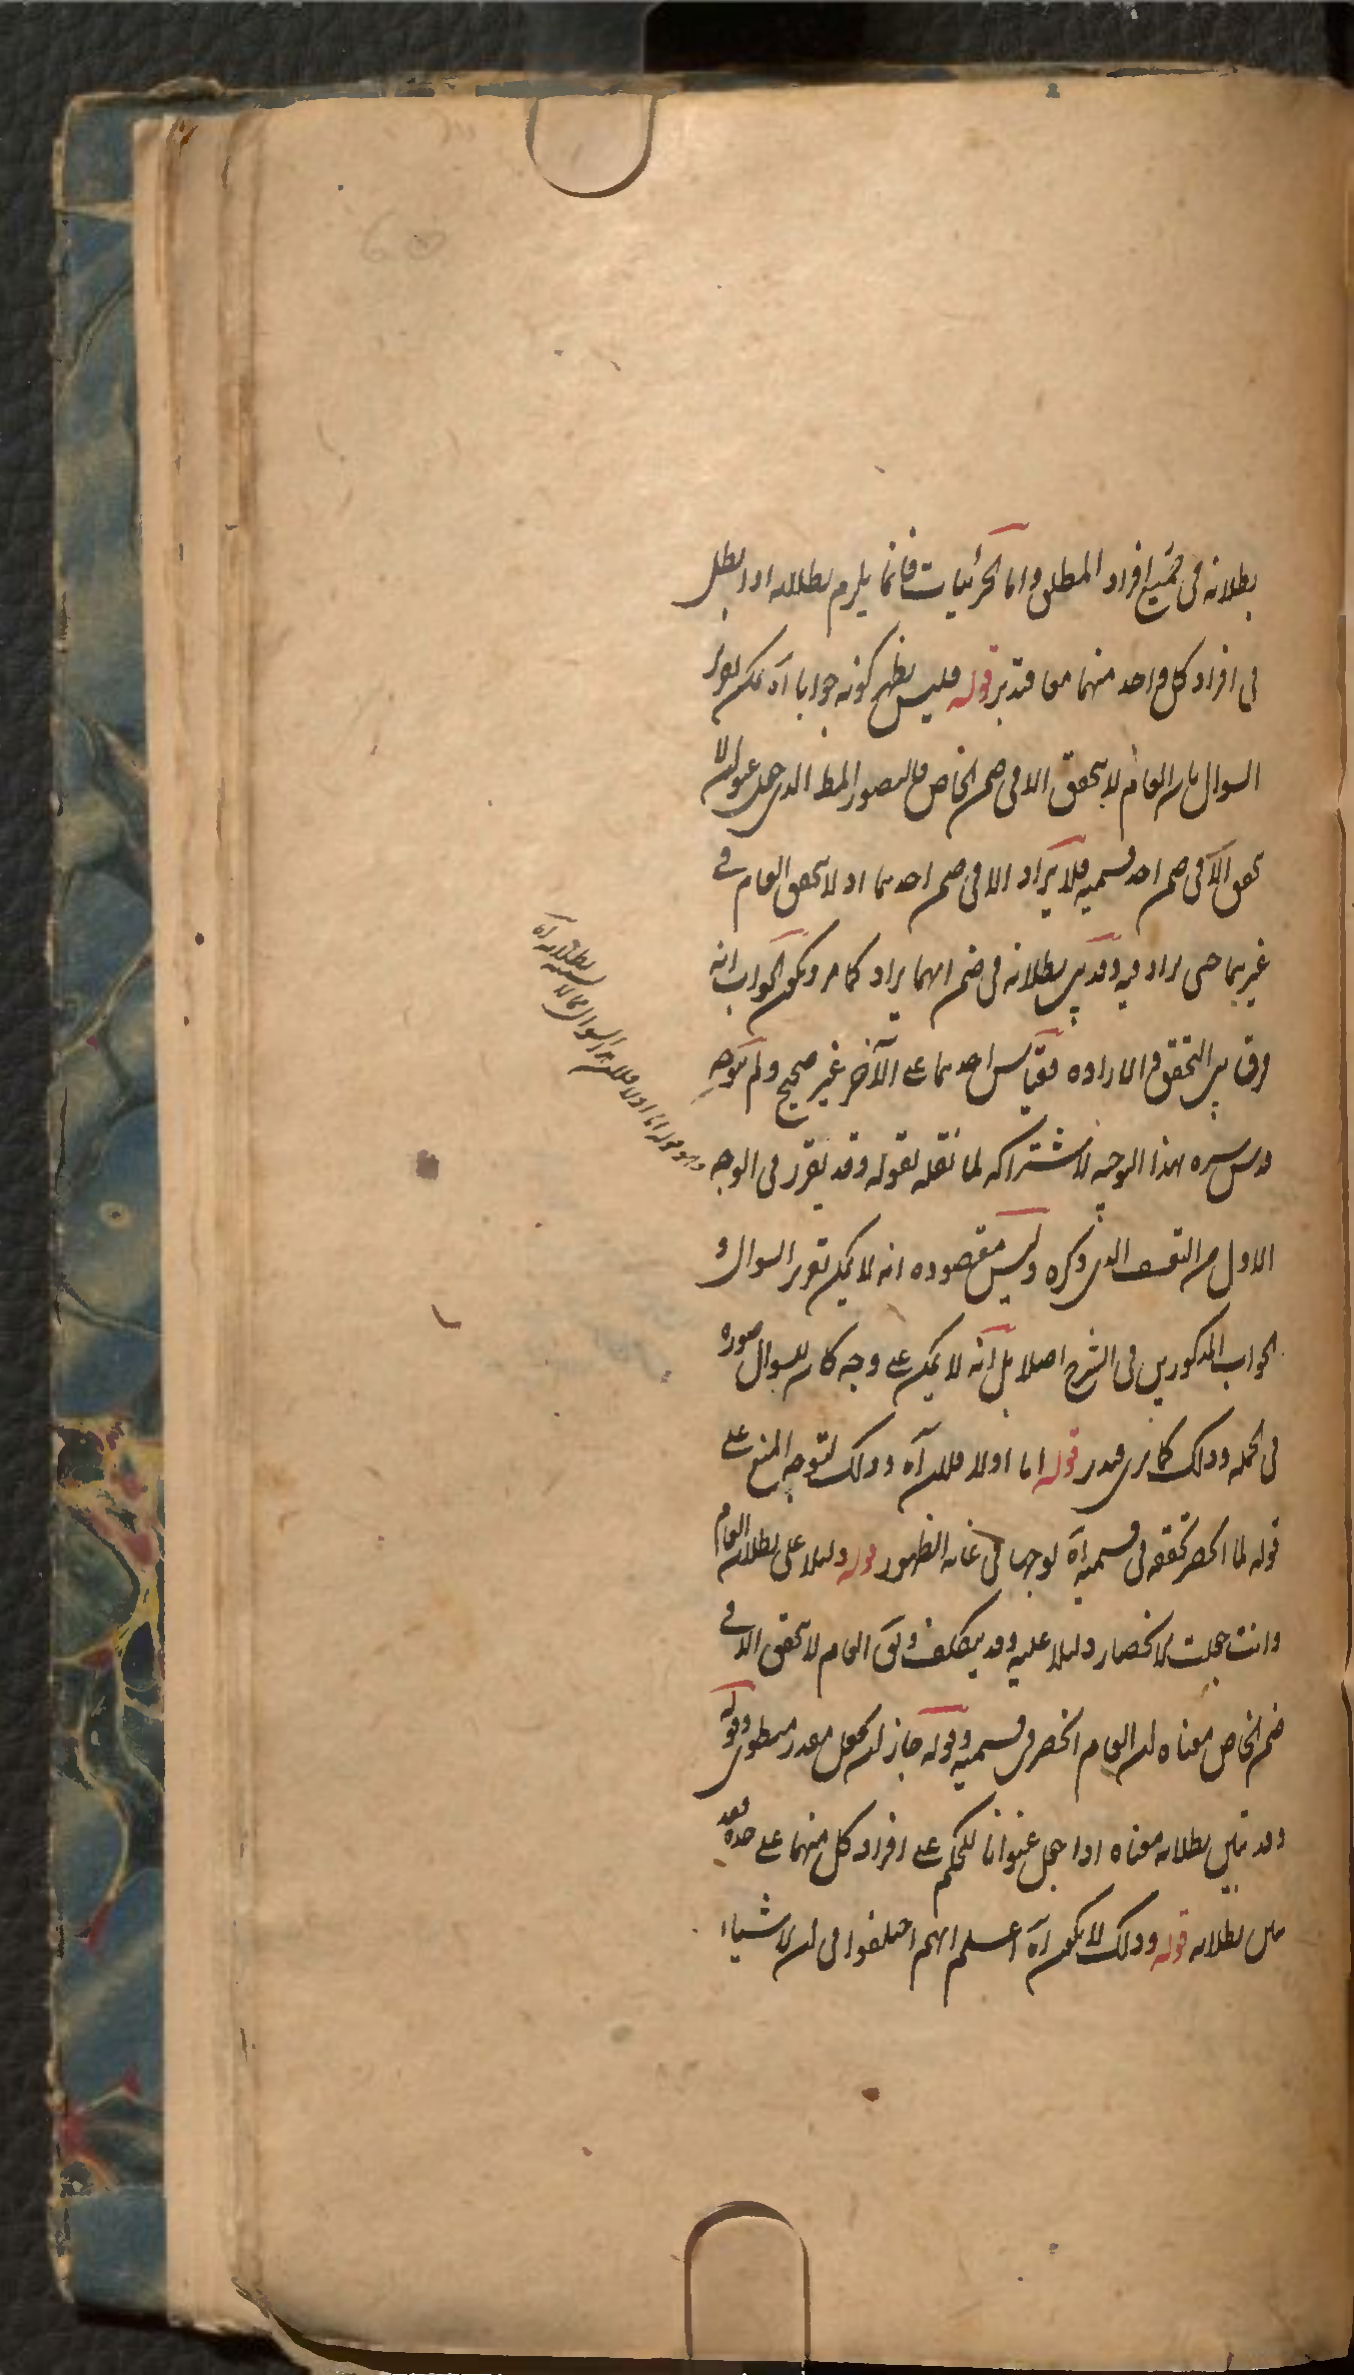 بطلانه فى جميع افراد المطلق واما الجزئيات فانما يلزم بطلانه اذا بطل
فى افراد كل واحد منهما معا فتدبر قوله فليس يظهر كونه جوابا آه يمكن تقرير
السوال بان العام لا يتحقق الا فى ضمن الخاص فالتصور المط الذى جعل عنوانا لا
تحقق الا فى ضمن احد قسميه فلا يراد الا فى ضمن احدهما اذ لا تحقق العام فى
غيرهما حتى يراد فيه وقد تبين بطلانه فى ضمن ايهما يراد كما مر ويكون الجواب انه
فرق بين التحقق والارادة فقياس احدهما على الآخر غير صحيح ولم يوجه
قدس سره بهذا الوجه لاشتراكه لما نقله بقوله وقد يقرر فى الوجه
الاول من التعسف الذى ذكره وليس مقصوده انه لا يمكن تقرير السوال و
الجواب المذكورين فى الشرح اصلا بل انه لا يمكن على وجه كان للسوال صورة
فى الجملة وذلك كما ترى فتدبر قوله اما اولا فلان آه وذلك لتوجه المنع على
قوله لما انحصر تحققه فى قسميه آه توجها فى غاية الظهور قوله دليلا على بطلان العام
وانت جعلت الانحصار دليلا عليه وقد يتكلف العام لا تحقق الا فى
ضمن الخاص معناه ان العام انحصر فى قسميه وقوله جاز ان يجعل مطوى وقوله
وقد تبين بطلانه معناه اذا جعل عنوانا للحكم على افراد كل منهما على حدة فقد
تبين بطلانه قوله وذلك لا يكون آه اعلم انهم اختلفوا فى ان الاشياء
وهو قوله اما اولا فلان السوال بطلانه آه